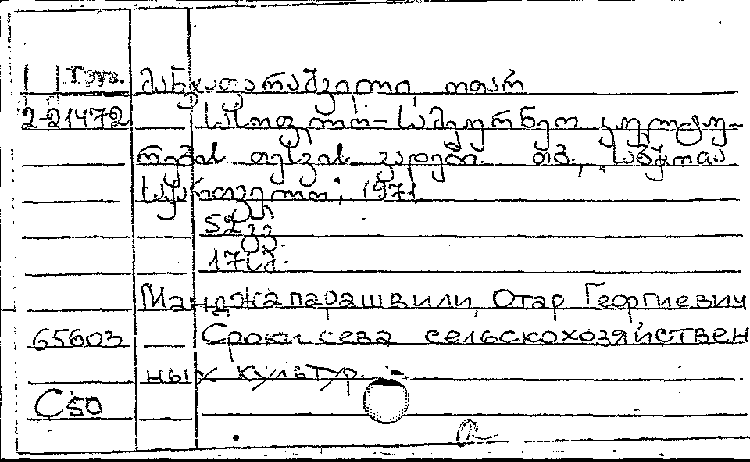 Груз. მანჯაფარაშვილი, ოთარ
2-21472 სასოფლო-სამეურნეო კულტუ-
რების თესვის ვადები. თბ., საბჭოთა
საქართველო, 1971
52 გვ
17 სმ.
Манджапарашвили, Отар Георгиевич
65603 — Сроки сева сельскохозяйствен
ных культур.
С50